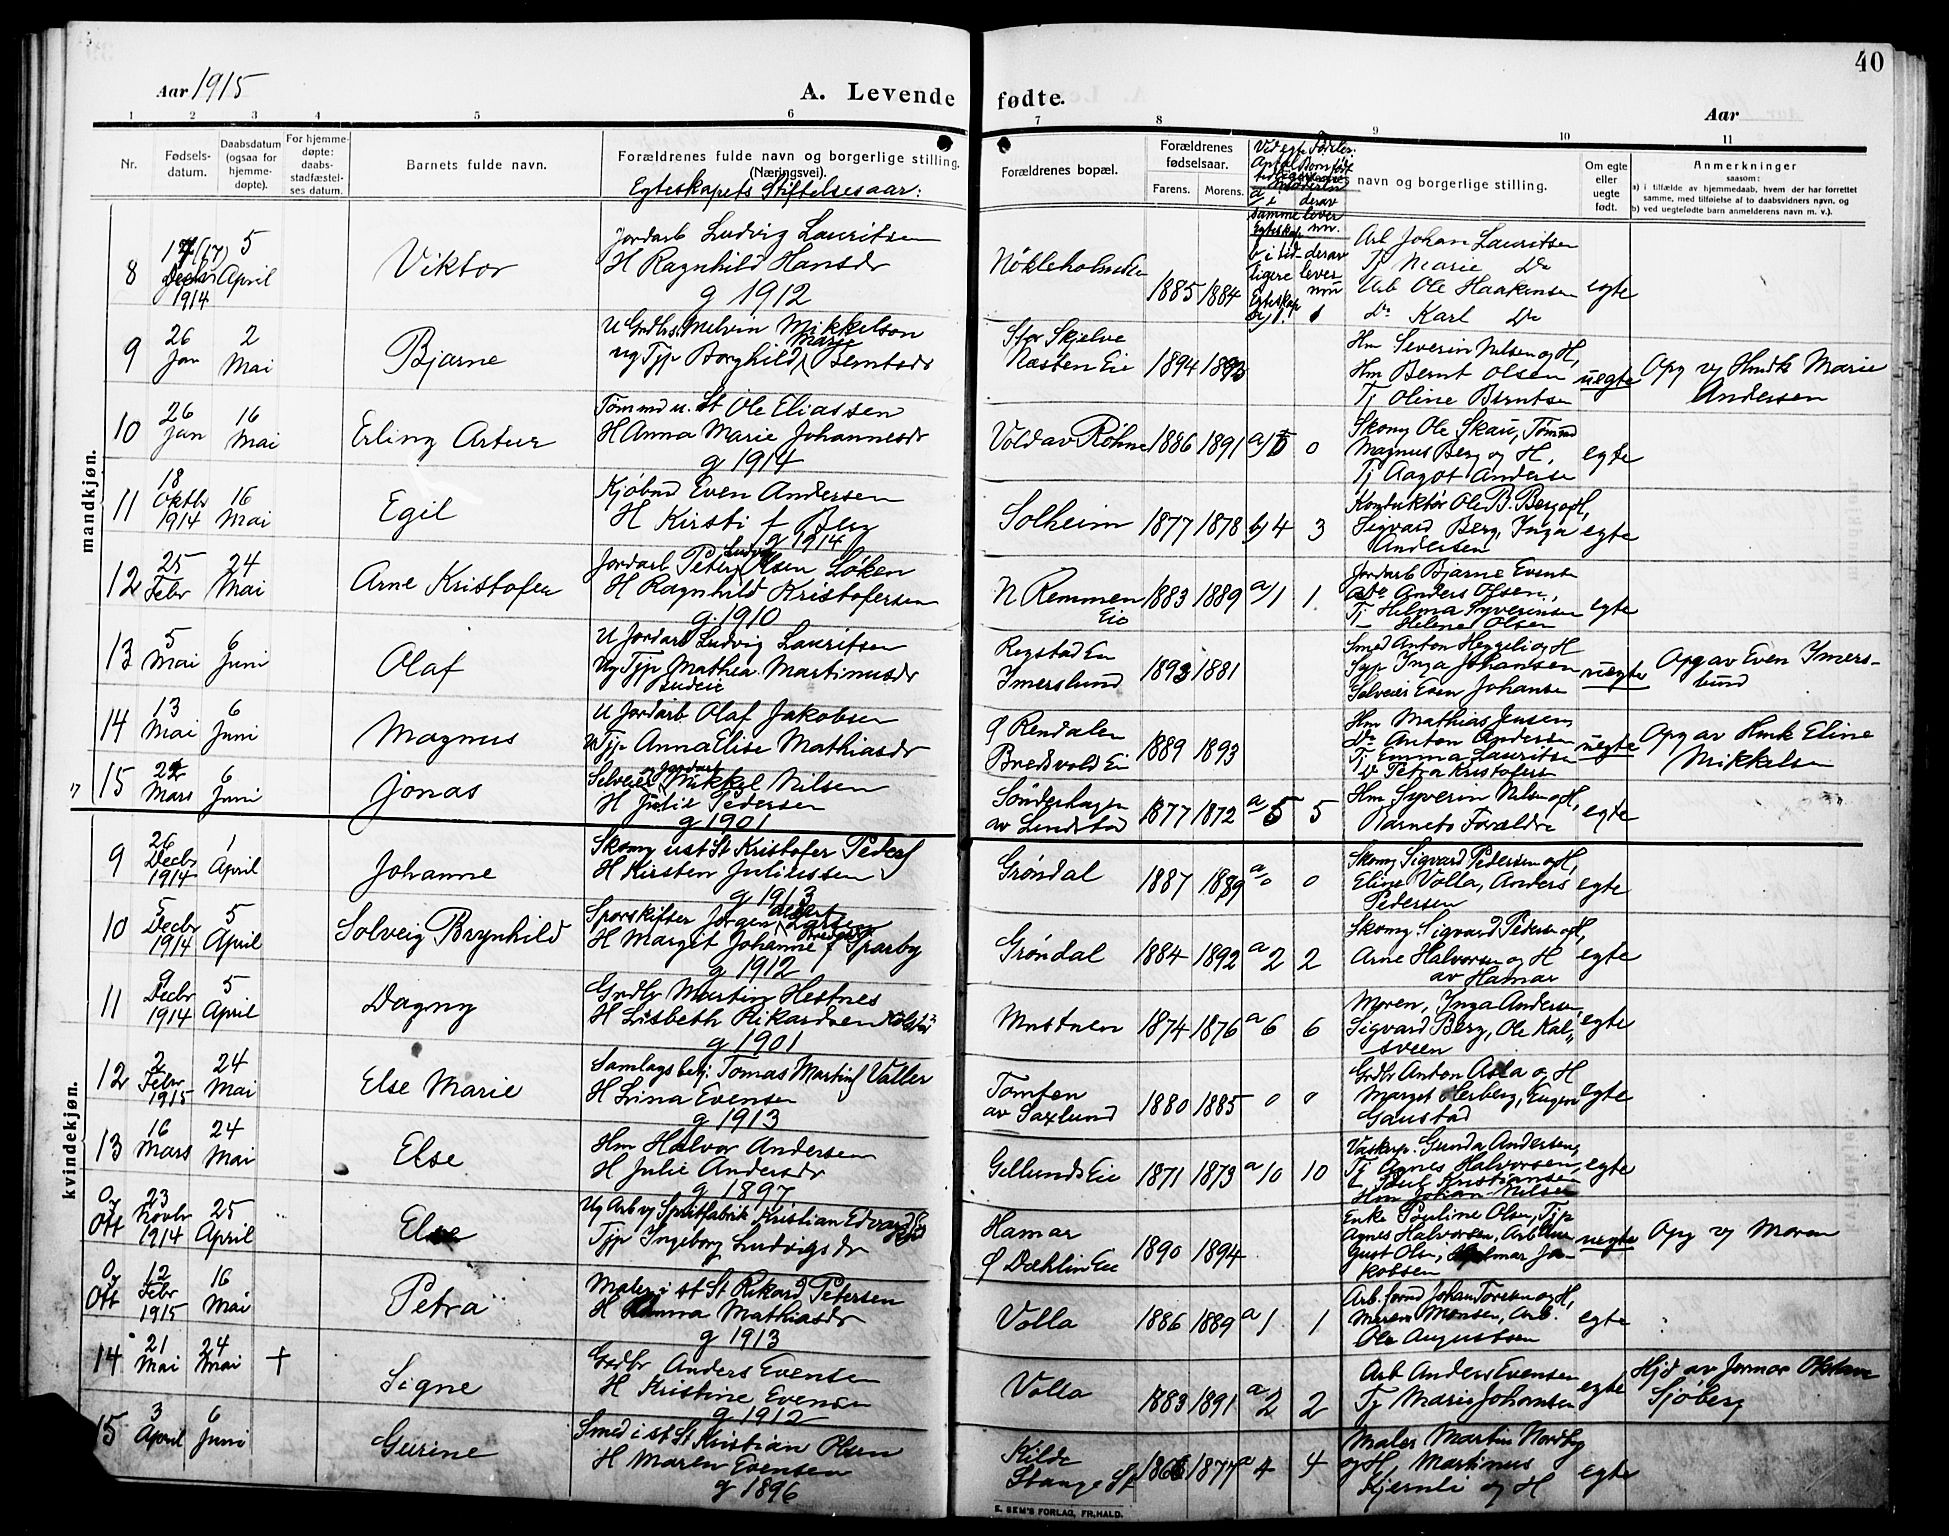 40
Aar 1915
A. Levende fødte.
Aar
1 2 3 4 5 6 7 8 9 10 11
Nr.
Fødsels-
datum.
Daabsdatum
(ogsaa for
hjemme-
døpte).
For hjemme-
døpte:
daabs-
stadfæstel-
ses datum.
Barnets fulde navn.
Forældrenes fulde navn og borgerlige stilling.
(Næringsvei).
Egteskapets Stiftelsesaar:
Forældrenes bopæl.
Forældrenes
fødselsaar.
Farens. Morens.
navn og borgerlige stilling.
Om egte
eller
uegte
født.
Anmerkninger
saasom:
a) i tilfælde av hjemmedaab, hvem der har forrettet
samme, med tilføielse af to daabsvidners navn, og
b) ved uegtefødte barn anmelderens navn m. v.).
mandkjøn.
8 1914 5 April Viktor
Jordarb Ludvig Lauritsen
H Ragnhild Hansdr
g 1912
1885 1884
Arb Johan Lauritsen
Tj Marie Do
Arb Ole Haakensen
Do Karl Do
egte
9 26 Jan 2 Mai Bjarne
U Grdbrs Melvin Mikkelsen
ug Tjp Borghild Marie Berntsdr
Stor Skjelve
Næsten Eie
1894
Hm Severin Nilsen og H,
Hm Bernt Olsen
Tj Oline Berntsen
uegte
Opg v Hmdk Marie
Andersen
10 26 Jan 16 Mai Erling Artur
Tømmd u. St Ole Eliassen
H Anna Marie Johannesdr
g 1914
Vold av Røhne 1886 1891 0
Skomg Ole Skau, Tømmd
Magnus Berg og H,
Tj Aagot Anderse
egte
11 18 Oktbr 1914 16 Mai Egil
Kjøbmd Even Andersen
H Kirsti f Berg
g 1914
Solheim 1877 1878 b) 4 3
Konduktør Ole B. Berg og H,
Sigvard Berg, Inga
Andersen
egte
12 25 Febr 24 Mai Arne Kristofer
Jordarb Peter Ludv Olsen Løken
H Ragnhild Kristofersen
g. 1910
N Remmen
Eie
1883 1889 a) 1 1
Jordarb Bjarne Event
Do Anders Olsen,
Tj Helma Syverinsen
— Helene Olsen
egte
13 5 Mai 6 Juni Olaf
U Jordarb Ludvig Lauritsen
Ug Tjp Mathea Martinusdr
Budeie
Regstad Eie
Imerslund
1893 1881
Smed Anton Heggeli og H
Syp Inga Johansen
Selveier Even Johanse
uegte
Opg av Even Imers-
lund
14 13 Mai 6 Juni Magnus
U Jordarb Olaf Jakobsen
U Tjp Anna Elise Mathiasdr
Ø Rendalen
Bredsvold Eie
1889 1893
Hm Mathias Jensen,
Do Anton Andersen
Tj Emma Lauritsen
Do Petra Kristofers
uegte
Opg av Hmk Eline
Mikkelsen
15 22 Mars 6 Juni Jonas
Selveier og Jordarb Mikkel Nilsen
H Julie Pedersen
g 1901
Sønderhagen
av Lindstad
1877 1872 a 5 5
Hm Syverin Nilsen og H,
Barnets Forældre
egte
kvindekjøn.
9 26 Decbr 1914 1 April Johanne
Skomg u st St Kristofer Peders
H Kirsten Juliussen
g 1913
Grøndal 1887 1889 a 0 0
Skomg Sigvard Pedersen og H,
Eline Volla, Anders
Pedersen
egte
10 5 Decbr 1914 5 April Solveig Brynhild
Sporskifter Jørgen Larsen
H Margit Johanne f Sparby
g 1912
Grøndal 1884 1892 a 2 2
Skomg. Sigvard Pedersen og H,
Arne Halvorsen og H
av Hamar
egte
11 9 Decbr 1914 5 April Dagny
Grdbr Martin Hestnes
H Lisbeth Rikardsen
g 1901
1874 1876 a 6 6
Moren, Inga Andersen,
Sigvard Berg, Ole Kal-
sveen
egte
12 2 Febr 1915 24 Mai Else Marie
Samlagsbetj: Tomas Martins Valler
H Lina Evensen
g 1913
Tomten
av Saxlund
1880 1885 0 0
Grdbr Anton Asla og H
Marget Herberg, Eugen
Gaustad
egte
13 16 Mars 24 Mai Else
Hm Halvor Andersen
H Julie Andersdr
g 1897
Gillunds Eie 1871 1873 a 10 10
Vaskep. Gunda Andersen,
Tj Agnes Halvorsen,
— Paul Kristiansen
Hm Johan Nilsen
egte
Ott 23 Novbr 1914 25 April Else
Ug Arb v Spritfabrik Kristian Edvard
Tjp Ingeborg Ludvigsdr
Hamar
Ø Dæhlin Eie
1890 1894
Enke Pauline Olsen, Tjp
Agnes Halvorsen, Arb
Gust Olsen, Hjalmar Ja-
kobsen
uegte
Opg v Moren
Ott 12 Febr 1915 16 Mai Petra
Maler i st St Rikard Petersen
H Anna Mathiasdr
g 1913
Volla 1886 1889 a 1 1
Arb. formd Johan Toresen og H,
Maren Monsen, Arb.
Ole Augustsen
egte
14 21 Mai 24 Mai + Signe
Grdbr Anders Evensen
H Kristine Evensen
g 1912
Volla 1883 1891 a 2 2
Arb Anders Evensen
Tj Marie Johansen
egte
Hjd av Jormor
Sjøberg
15 3 April 6 Juni Gurine
Smed i st St Kristian Olsen
H Maren Evensen
g 1896
Kilde
Stange St
1877 a 4 4
Maler Martin Nordby
og H, Martinus
Kjernli og H
egte
E. SEM'S FORLAG, FR.HALD.